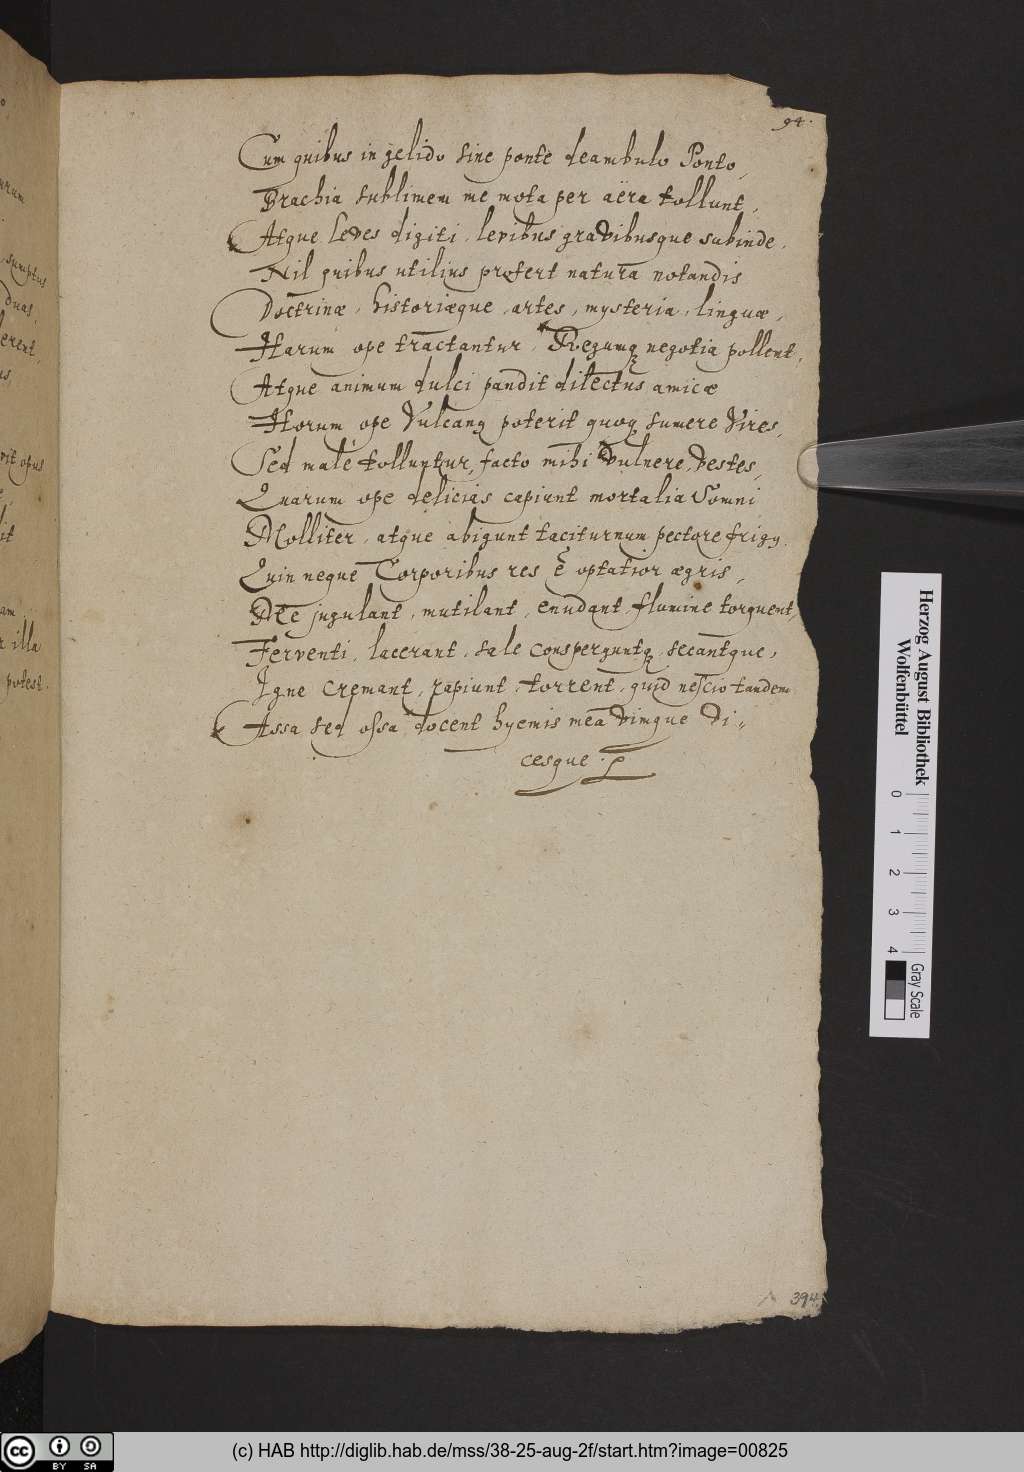 94.
Cum quibus in gelido sine ponte deambulo Ponto,
Brachia sublimem me mota per aëra tollunt,
Atque leves digiti, levibus gravibusque subinde,
Nil quibus utilius profert natura notandis
Doctrinæ, historiæque, artes, mysteria, linguæ,
Harum ope tractantur, Regumq negotia pollent,
Atque animum dulci pandit dilectus amicæ
Horum ope Vulcanq poterit quoq sumere Vires,
Sed malè tolluntur, facto mihi vulnere, vestes,
Quarum ope delicias capiunt mortalia Somni
Molliter, atque abigunt taciturnum pectore frigq.
Quin neque Corporibus res ē optatior ægris,
Me jugulant, mutilant, enudant, flumine torquent,
Ferventi, lacerant, sale consperguntq, secantque,
Igne cremant, rapiunt, torrent, quid nescio tandem
Assa sed ossa docent hyemis mea vimque vi=
cesque.
394
sumptus
duas,
erent,
opus
illa
potest.
Herzog August Bibliothek
Wolfenbüttel
0 1 2 3 4
Gray Scale
cc BY SA
(c) HAB http://diglib.hab.de/mss/38-25-aug-2f/start.htm?image=00825